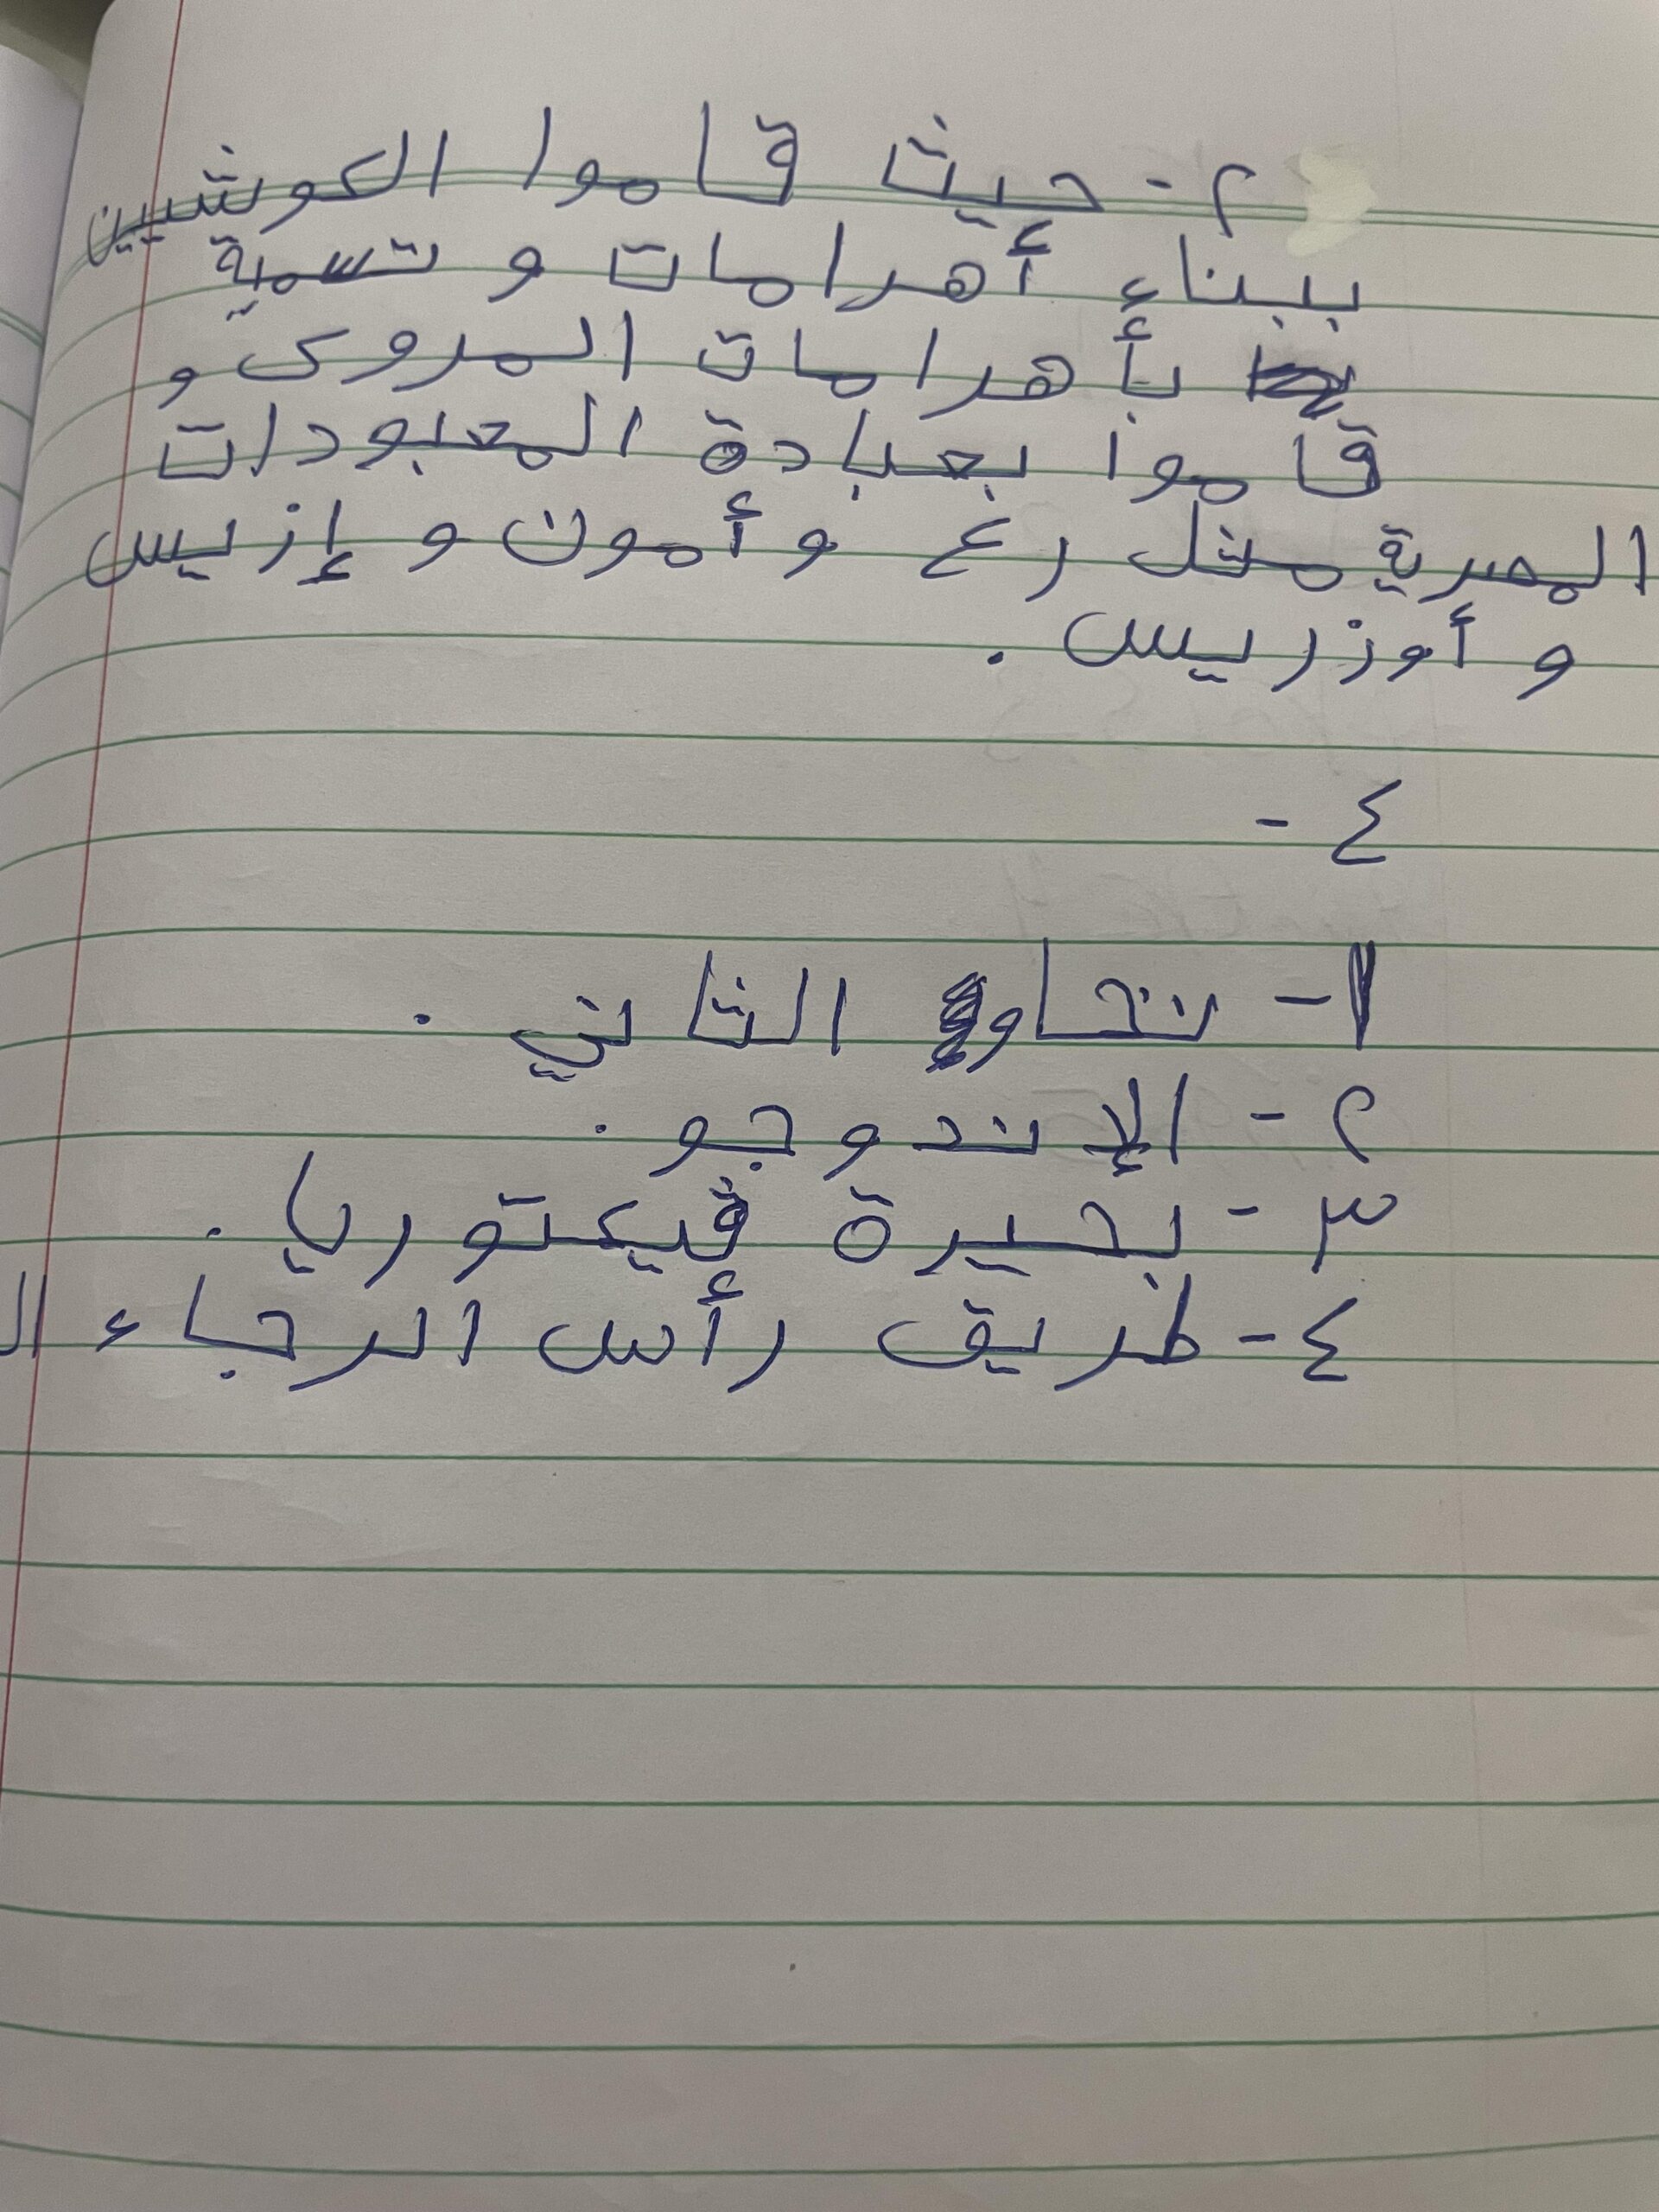 ٢- حيث قاموا الكوشيين
ببناء أهرامات و تسمية
بأهرامات المروى و
قاموا بعبادة المعبودات
المصرية مثل رع و أمون و إزيس
و أوزريس .
٤ -
١- نخاو الثاني .
٢- الإندوجو .
٣- بحيرة ڤيكتوريا .
٤- طريق رأس الرجاء ال